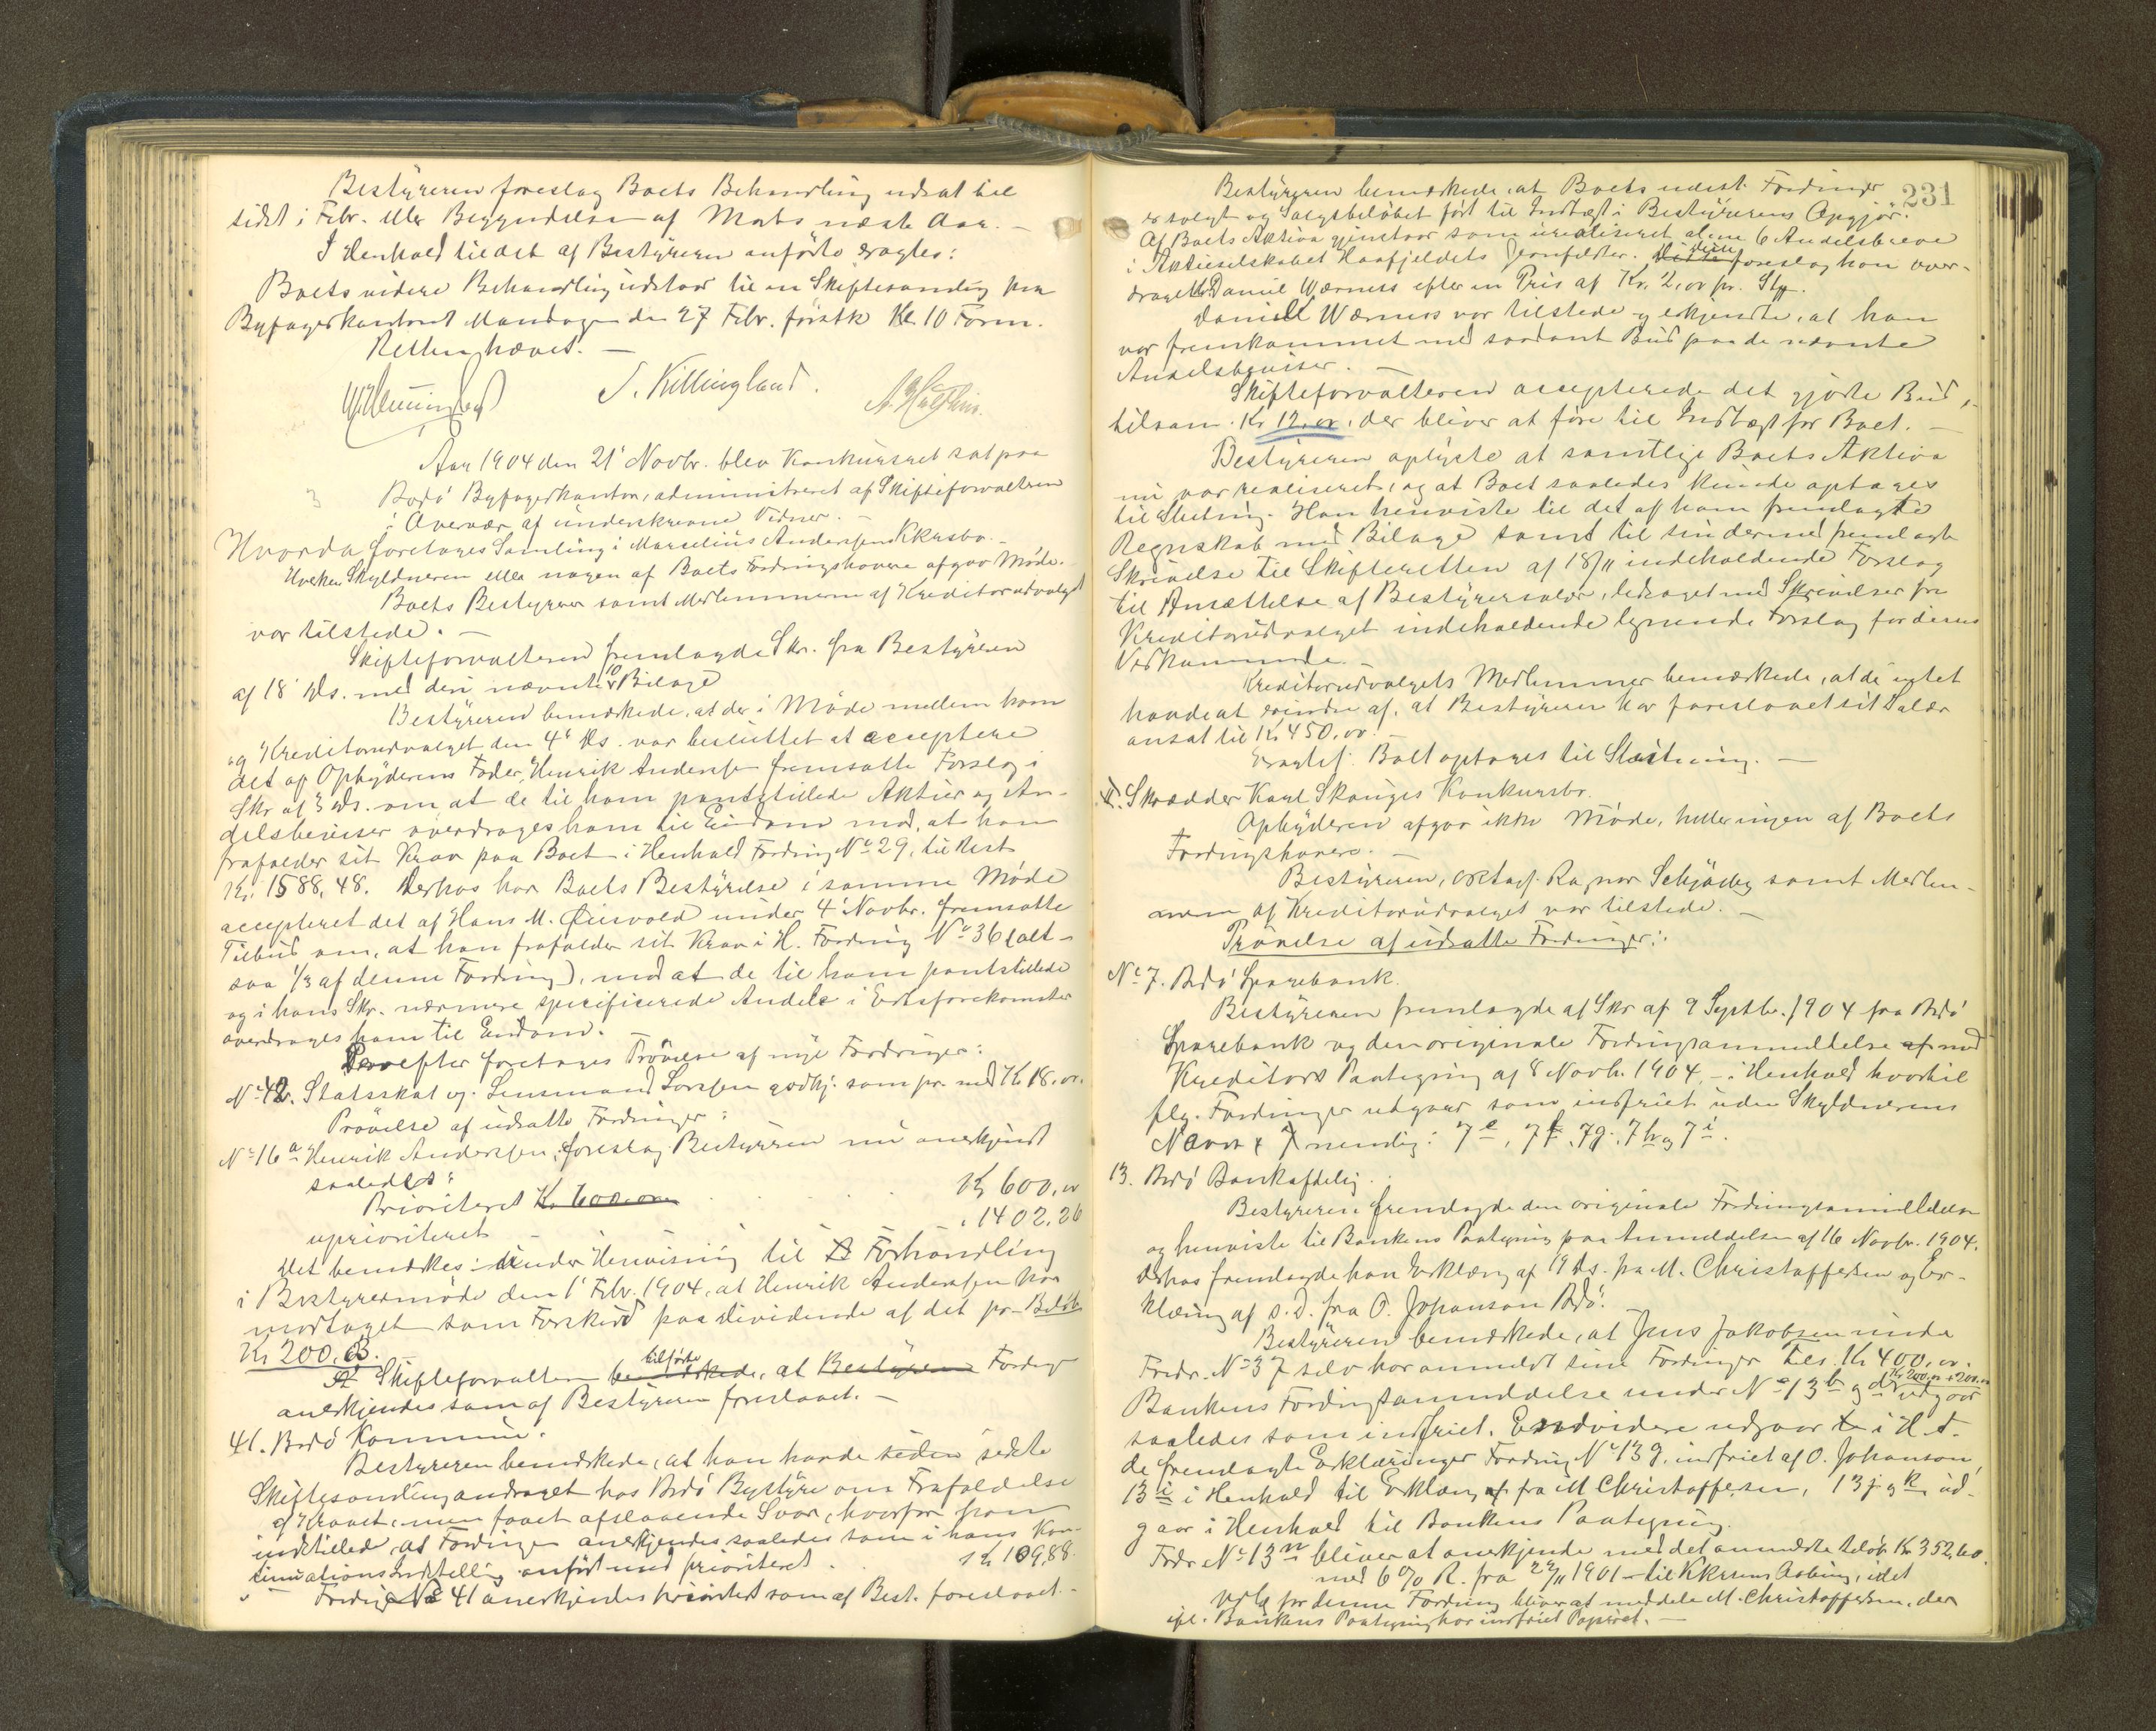 Bestyreren foreslog Boets Behandling udsat til
sidst i Febr. eller Begyndelsen af Marts næste Aar. —
I Henhold til det af Bestyreren anførte eragtes:
Boets videre Behandling udstaar til en Skiftesamling paa
Byfogedkontoret Mandagen den 27 Febr. førstk Kl 10 Form.
Retten hævet. —
S. Killingland.
Aar 1904 den 21' Novbr. blev Konkursret sat paa
Bodø Byfogedkontor, administreret af Skifteforvalteren
i Overvær af underskrevne Vidner. —
Hvorda foretoges Samling i Marselius Anderssens Kkursbo. —
Hverken Skyldneren eller nogen af Boets Fordringshavere afgav Møde.
Boets Bestyrer samt Medlemmerne af Kreditorudvalget
var tilstede. —
Skifteforvalteren fremlagde Skr. fra Bestyreren
af 18' ds. med deri nævnte 10 Bilage
Bestyreren bemærkede, at der i Møde mellem ham
og Kreditorudvalget den 4' ds. var besluttet at acceptere
det af Opbyderens Fader, Henrik Anderssen fremsatte Forslag i
Skr af 3 ds. om at de til ham pantstillede Aktier og An-
delsbeviser overdrages ham til Eiendom mod, at han
frafalder sit Krav paa Boet i Henhold Fordring No 29, til Rest
Kr. 1588,48. Derhos har Boets Bestyrelse i samme Møde
accepteret det af Hans M. Øiesvold under 4' Novbr. fremsatte
Tilbud om, at han frafalder sit Krav i H. Fordring No 36 (alt-
saa 1/3 af denne Fordring), mod at de til ham pantstillede
og i hans Skr. nærmere specificerede Andele i Ertsforekomster
overdrages ham til Eiendom. —
Derefter foretoges Prøvelse af nye Fordringer:
No 42. Statsskat v. Lensmand Lorssen godkj. som pr. med Kr 18,00.
Prøvelse af udsatte Fordringer:
No 16a Henrik Anderssen, foreslog Bestyreren nu anerkjendt
saaledes:
Prioriteret K. 600.00 . . . . Kr 600,00
uprioriteret — — " 1402,26
Det bemærkes under Henvisning til Forhandling
i Bestyrermøde den 1' Febr. 1904, at Henrik Anderssen har
modtaget som Forskud paa Dividende af det pr. Beløb
Kr 200,03.
Skifteforvalteren bemærkede tilførte, at Bestyreren Fordring
anerkjendes som af Bestyreren foreslaaet. —
41. Bodø Kommune.
Bestyreren bemærkede, at han havde siden sidste
Skiftesamling andraget hos Bodø Bystyre om Frafaldelse
af Kravet, men faaet afslaaende Svar, hvorfor han
indstilled, at Fordringen anerkjendes saaledes som i hans Kon-
tinuations Indstilling anført med prioriteret . Kr 109,88.
Fordring No 41 anerkjendes prioritet som af Best. foreslaaet. —
231
Bestyreren bemærkede, at Boets udest. Fordringer
er solgt og Salgsbeløbet ført til Indtægt i Bestyrerens Opgjør.
Af Boets Aktiva gjenstaar som urealiseret alene 6 Andelsbreve
i Aktieselskabet Haafjeldets Jernfelter. Disse foreslog han over-
draget Daniel Wærness efter en Pris af Kr. 2,00 pr. Stk.
Daniel Wærness var tilstede og erkjendte, at han
var fremkommet med saadant Bud paa de nævnte
Andelsbeviser. —
Skifteforvalteren accepterede det gjorte Bud,
tilsam. Kr 12,00, der bliver at føre til Indtægt for Boet. —
Bestyreren oplyste at samtlige Boets Aktiva
nu var realiseret, og at Boet saaledes kunde optages
til Slutning. Han henviste til det af ham fremlagte
Regnskab med Bilage samt til sin dermed fremlagte
Skrivelse til Skifteretten af 18/11 indeholdende Forslag
til Ansættelse af Bestyrersalær, ledsaget med Skrivelser fra
Kreditorudvalget indeholdende lignende Forslag for deres
Vedkommende. —
Kreditorudvalgets Medlemmer bemærkede, at de intet
havde at erindre af, at Bestyreren har foreslaaet sit Salær
ansat til Kr 450,00. —
Eragtes: Boet optages til Slutning. —
II. Skrædder Karl Skauges Konkursbo.
Opbyderen afgav ikke Møde, heller ingen af Boets
Fordringshavere. —
Bestyreren, Ragnar Schjølberg samt Medlem-
mene af Kreditorudvalget var tilstede. —
Prøvelse af udsatte Fordringer:
No 7. Bodø Sparebank.
Bestyreren fremlagde af Skr af 9 Septbr. 1904 fra Bodø
Sparebank og den originale Fordringsanmeldelse af med
Kreditors Paategning af 8 Novb. 1904, — i Henhold hvortil
flg. Fordringer udgaar som indfriet uden Skyldnerens
Navn nemlig: 7e, 7f, 7g, 7h og 7i.
13. Bodø Bankafdeling.
Bestyreren fremlagde den originale Fordringsanmeldelse
og henviste til Bankens Paategning paa Anmeldelsen af 16 Novbr. 1904.
Derhos fremlagde han Erklæring af 19 ds. fra M. Christoffersen og Er-
klæring af s. D. fra O. Johanson Bodø.
Bestyreren bemærkede, at Jens Jakobsen under
Fordr. No 37 selv har anmeldt sine Fordringer tils. Kr 400,00.
Bankens Fordringsanmeldelse under No 13b og d Kr 200,00 + 200,00 udgaar
saaledes som indfriet. Endvidere udgaar i H. t.
de fremlagte Erklæringer Fordring No 13g, indfriet af O. Johanson,
13i i Henhold til Erklæring af fra M Christoffersen, 13j og k ud-
gaar i Henhold til Bankens Paategning.
Fordr No 13n bliver at anerkjende med det anmeldte Beløb Kr 352,60.
med 6 % R. fra 22/11 1901 — til Kkursens Aabning, idet
Udlæg for denne Fordring bliver at meddele M. Christoffersen, der
ifl. Bankens Paategning har indfriet Papiret. —